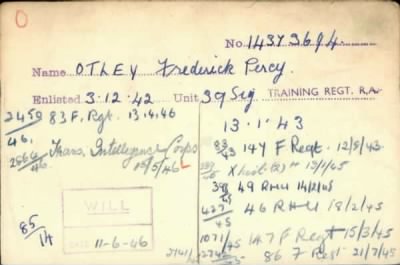 O
No. 14373694.
Name OTLEY Frederick Percy.
Enlisted 3.12.42 Unit 39 Sig TRAINING REGT. R.A.
2459/46. 83 F. Rgt. 13.4.46
13.1.43
83/43 147 F Regt. 12/8/43
Trans. Intelligence Corps
15/5/46
X list 13/1/45
49 RHU 14/2/45
427/45 46 RHU 15/2/45
85/14
WILL
DATE 11-6-46
1071/45 147 F Regt 15/3/45
86 F Regt 21/7/45